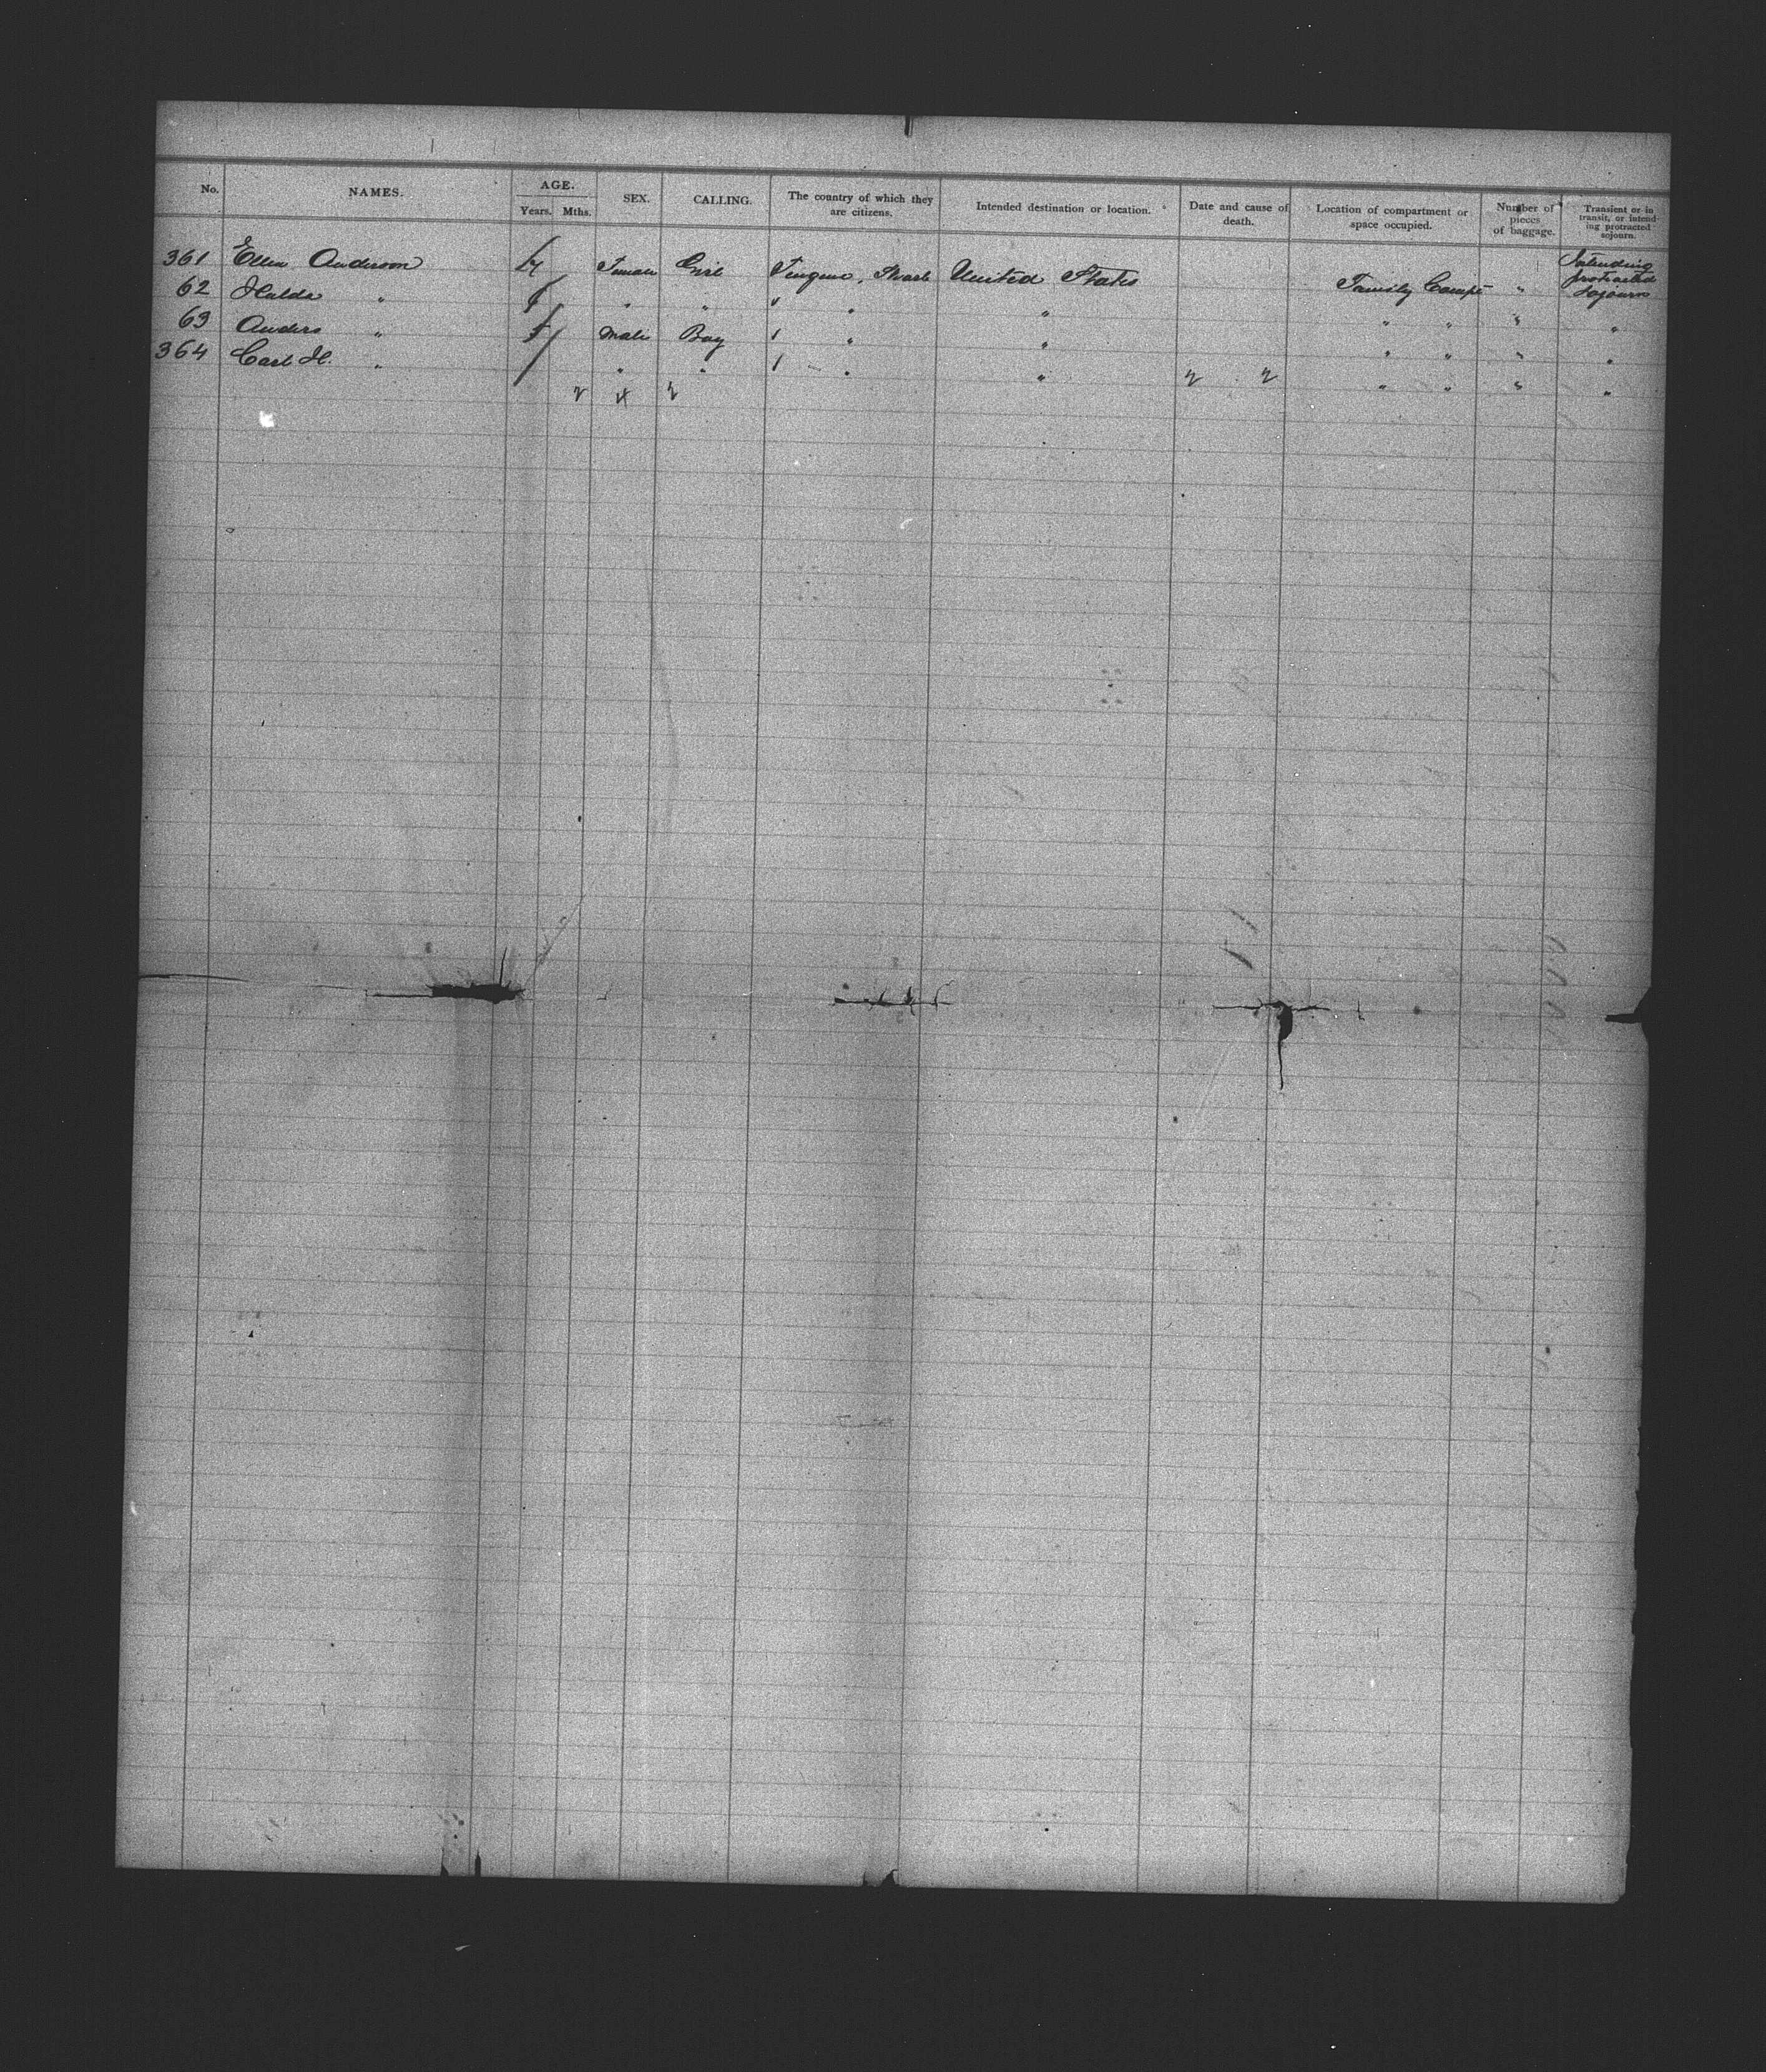 No. NAMES. AGE. Years. Mths. SEX. CALLING. The country of which they are citizens. Intended destination or location. Date and cause of death. Location of compartment or space occupied. Number of pieces of baggage. Transient or in transit, or intending protracted sojourn.
361 Ellen Anderson Female Girl United States Family Compt " Intending protracted Sojourn
62 Hulda " " " " " " " " "
63 Anders " Male Boy " " " " " "
364 Carl H. " " " " " " " " "